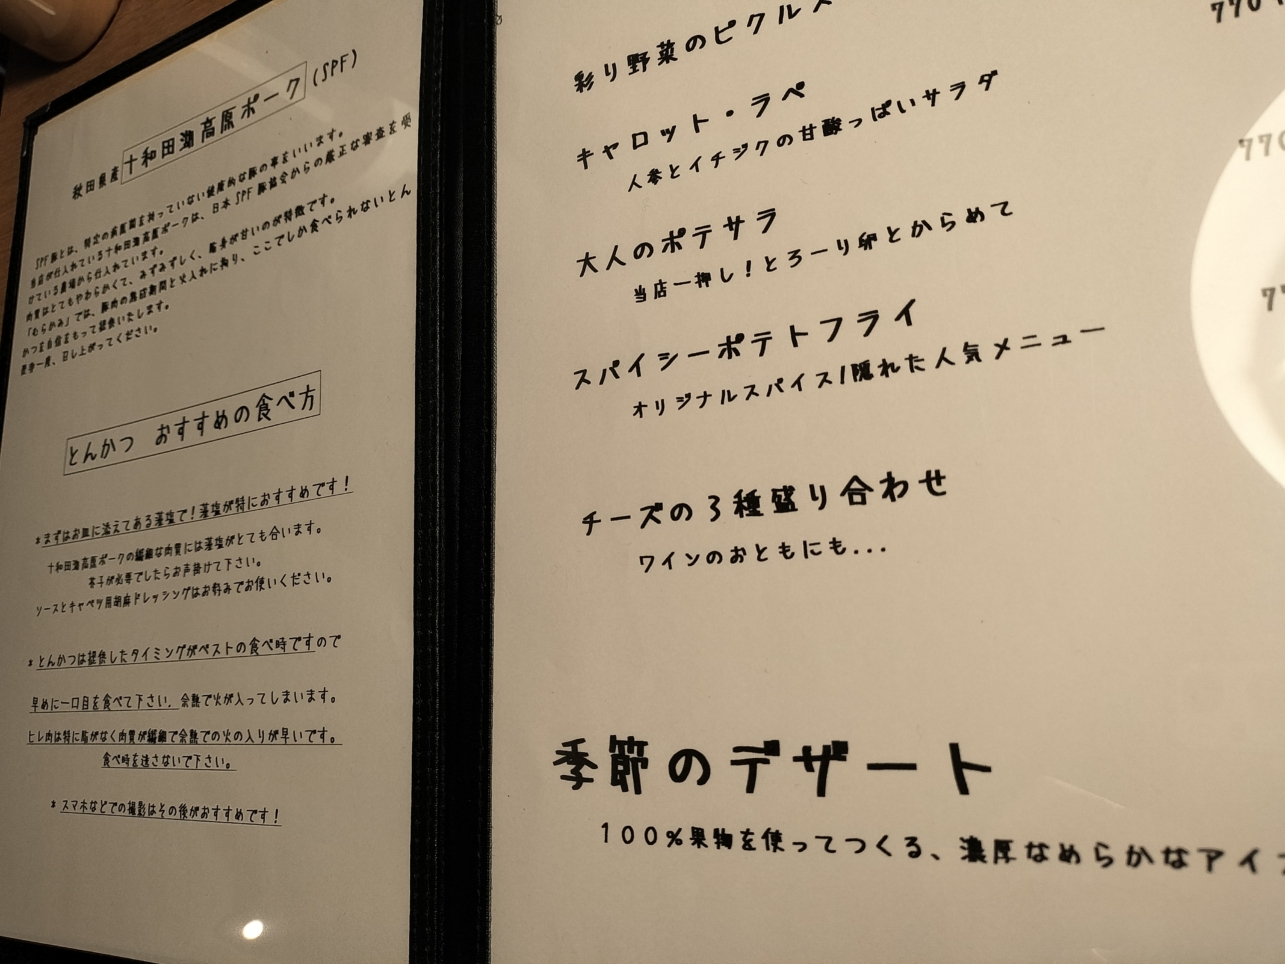 秋田県産十和田湖高原ポーク(SPF)
SPF豚とは、特定の病原菌を持っていない健康的な豚の事をいいます。
当店が仕入れている十和田湖高原ポークは、日本SPF豚協会からの厳正な審査を受
けている農場から仕入れています。
肉質はとてもやわらかくて、みずみずしく、脂身が甘いのが特徴です。
「むらかみ」では、豚肉の熟成期間と火入れに拘り、ここでしか食べられないとん
かつを自信をもって提供いたします。
是非一度、召し上がってください。
とんかつ おすすめの食べ方
*まずはお皿に添えてある藻塩で!藻塩が特におすすめです!
十和田湖高原ポークの繊細な肉質には藻塩がとても合います。
芥子が必要でしたらお声掛けて下さい。
ソースとキャベツ用胡麻ドレッシングはお好みでお使いください。
*とんかつは提供したタイミングがベストの食べ時ですので
早めに一口目を食べて下さい。余熱で火が入ってしまいます。
ヒレ肉は特に脂がなく肉質が繊細で余熱での火の入りが早いです。
食べ時を逃さないで下さい。
*スマホなどでの撮影はその後がおすすめです!
彩り野菜のピクルス
770
キャロット・ラペ
人参とイチジクの甘酸っぱいサラダ
770
大人のポテサラ
当店一押し!とろーり卵とからめて
77
スパイシーポテトフライ
オリジナルスパイス/隠れた人気メニュー
チーズの3種盛り合わせ
ワインのおともにも...
季節のデザート
100%果物を使ってつくる、濃厚なめらかなアイ